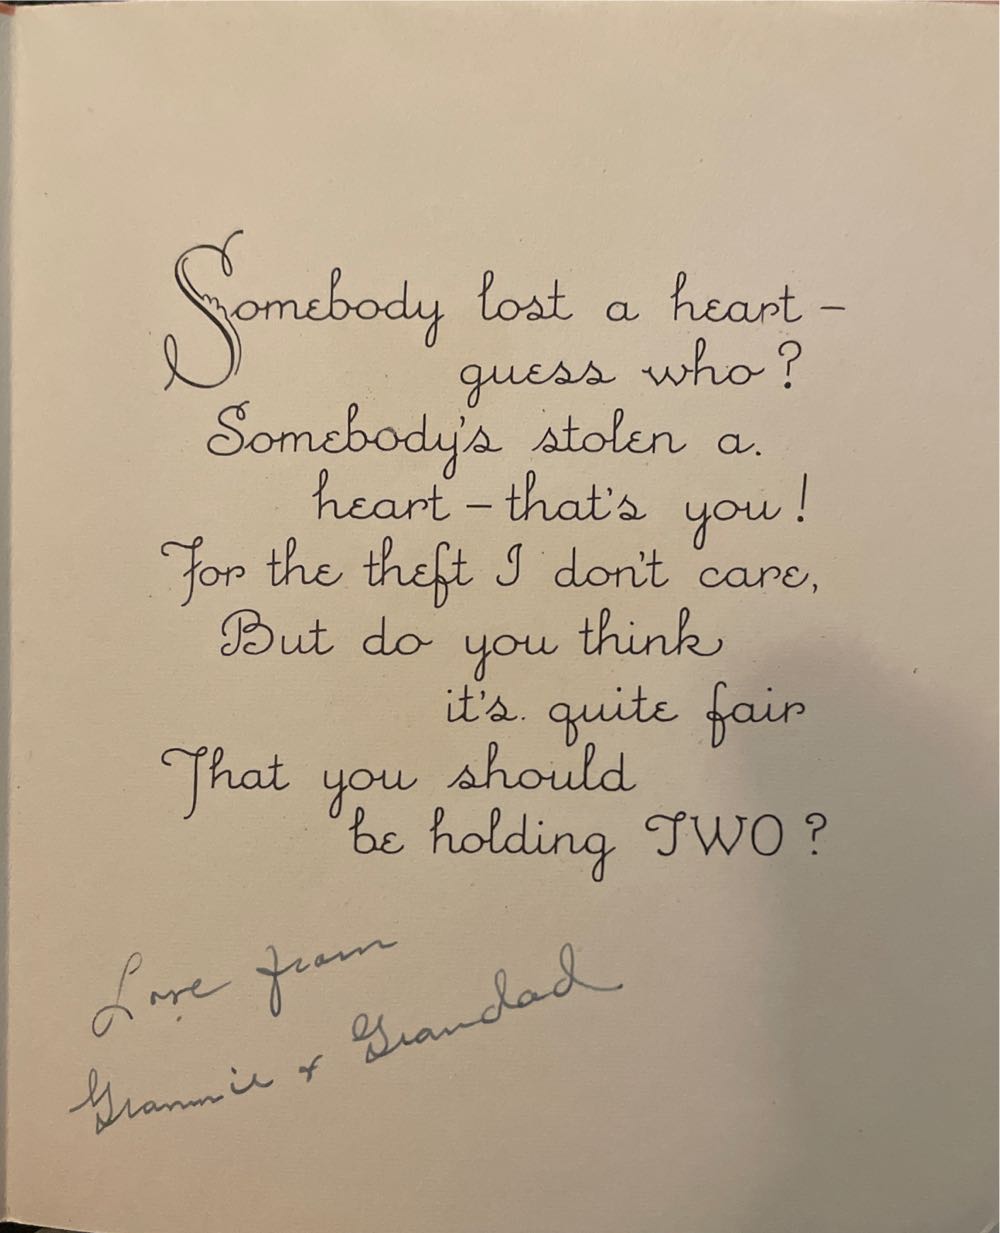 Somebody lost a heart –
guess who?
Somebody's stolen a
heart – that's you!
For the theft I don't care,
But do you think
it's quite fair
That you should
be holding TWO?
Love from
Grannie & Grandad